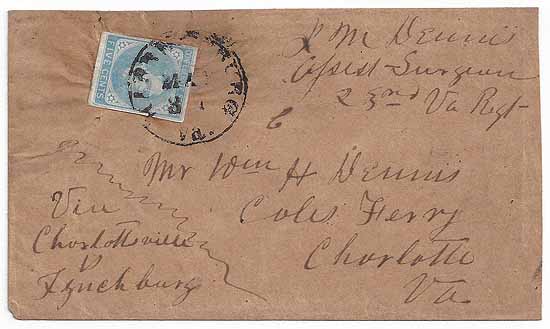 FIVE CENTS
MAY
8
VA
J M Dennis
Assist Surgeon
23rd Va Regt
Mr Wm H Dennis
Coles Ferry
Charlotte
Va
Via
Charlottsville
&
Lynchburg